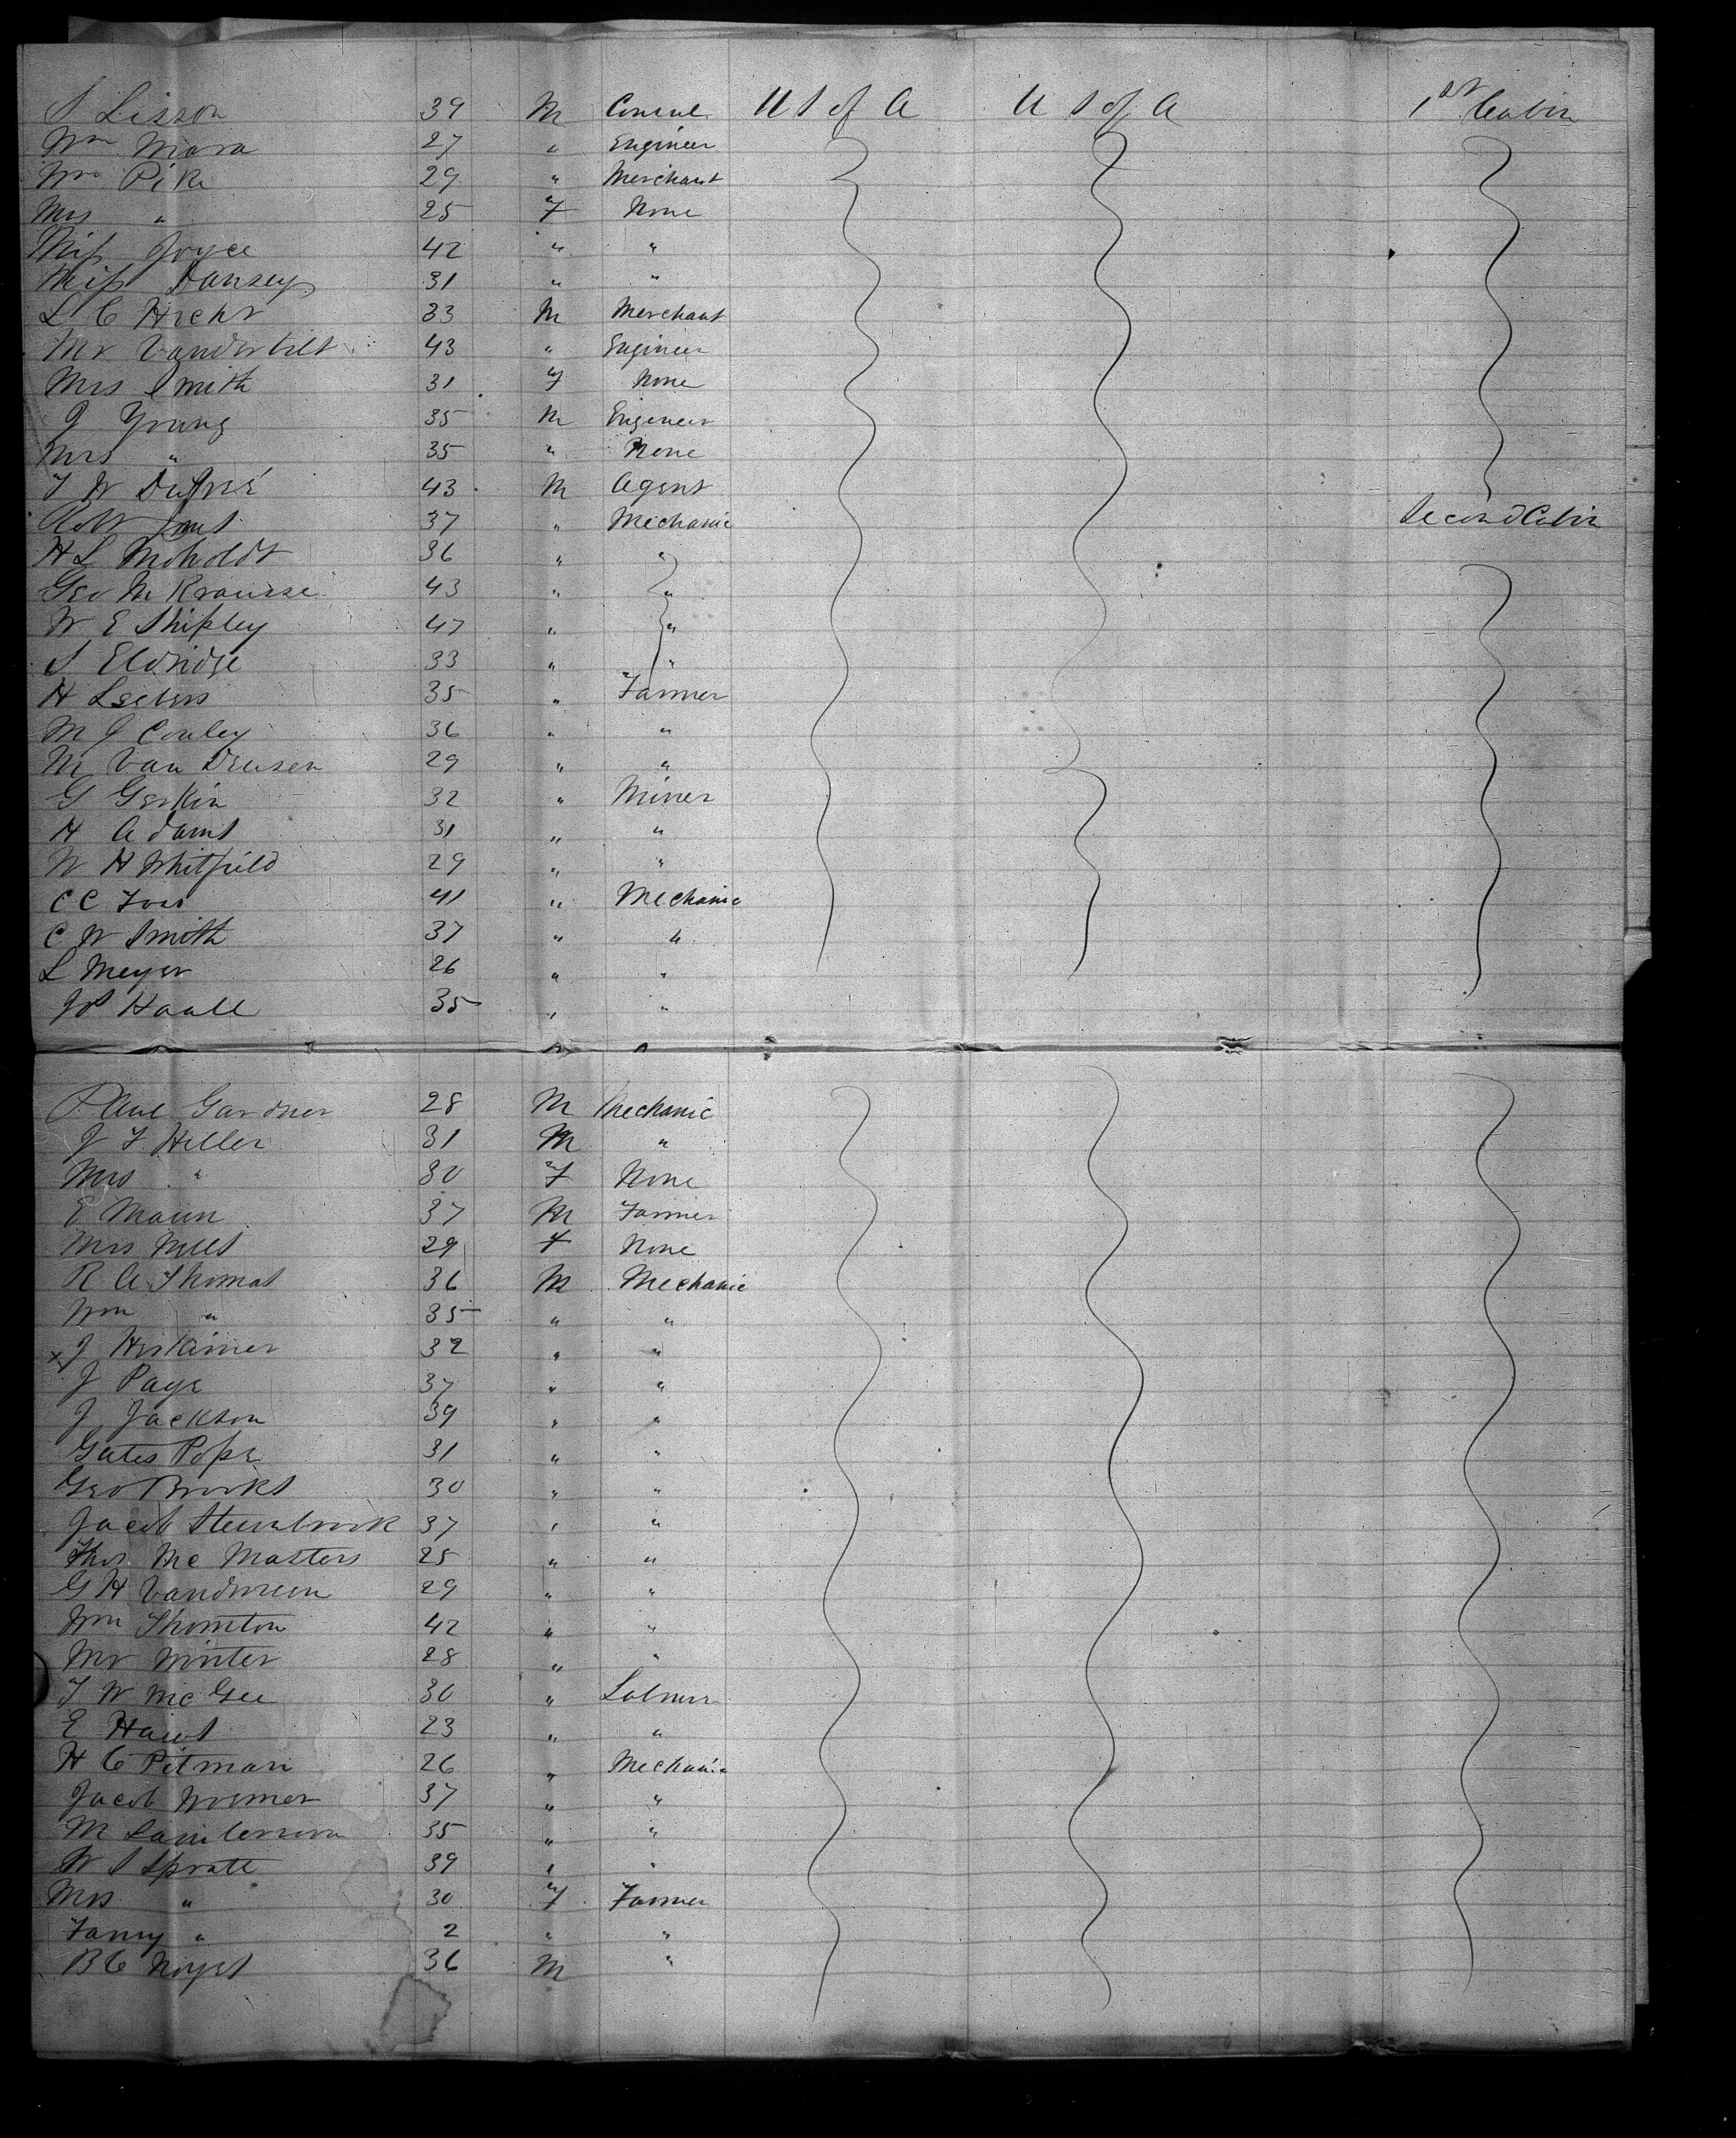 S Lisson 39 M Consul U S of A U S of A 1st Cabin
Wm Mara 27 " Engineer
Wm Pike 29 " Merchant
Mrs " 25 F None
Miss Joyce 42 " "
Miss Dansey 31 " "
L C Hecht 33 M Merchant
Mr Vanderbilt 43 " Engineer
Mrs Smith 31 F None
J Young 35 M Engineer
Mrs " 35 " None
T W 43 M Agent
37 " Mechanic Second Cabin
H L 36 " "
Geo M Krausse 43 " "
W E Shipley 47 " "
S Eldridge 33 " "
H 35 " Farmer
M J Conley 36 " "
M Van Deusen 29 " "
G Gerkin 32 " Miner
H Adams 31 " "
W H Whitfield 29 " "
C C 41 " Mechanic
C W Smith 37 " "
L Meyer 26 " "
Haall 35 " "
Gardner 28 M Mechanic
J F Heller 31 M "
Mrs " 30 F None
E Mann 37 M Farmer
Mrs 29 F None
R A Thomas 36 M Mechanic
Wm " 35 " "
x J 32 " "
J Page 37 " "
J Jackson 39 " "
Gates Pope 31 " "
Geo Brooks 30 " "
Jacob 37 " "
Thos Mc Masters 25 " "
G H 29 " "
Wm Thornton 42 " "
Mr Winter 28 " "
T W Mc Gee 30 " Laborer
E 23 " "
H C Pitman 26 " Mechanic
Jacob 37 " "
M 35 " "
W S Spratt 39 " "
Mrs " 30 F Farmer
Fanny " 2 " "
B C Noyes 36 M "